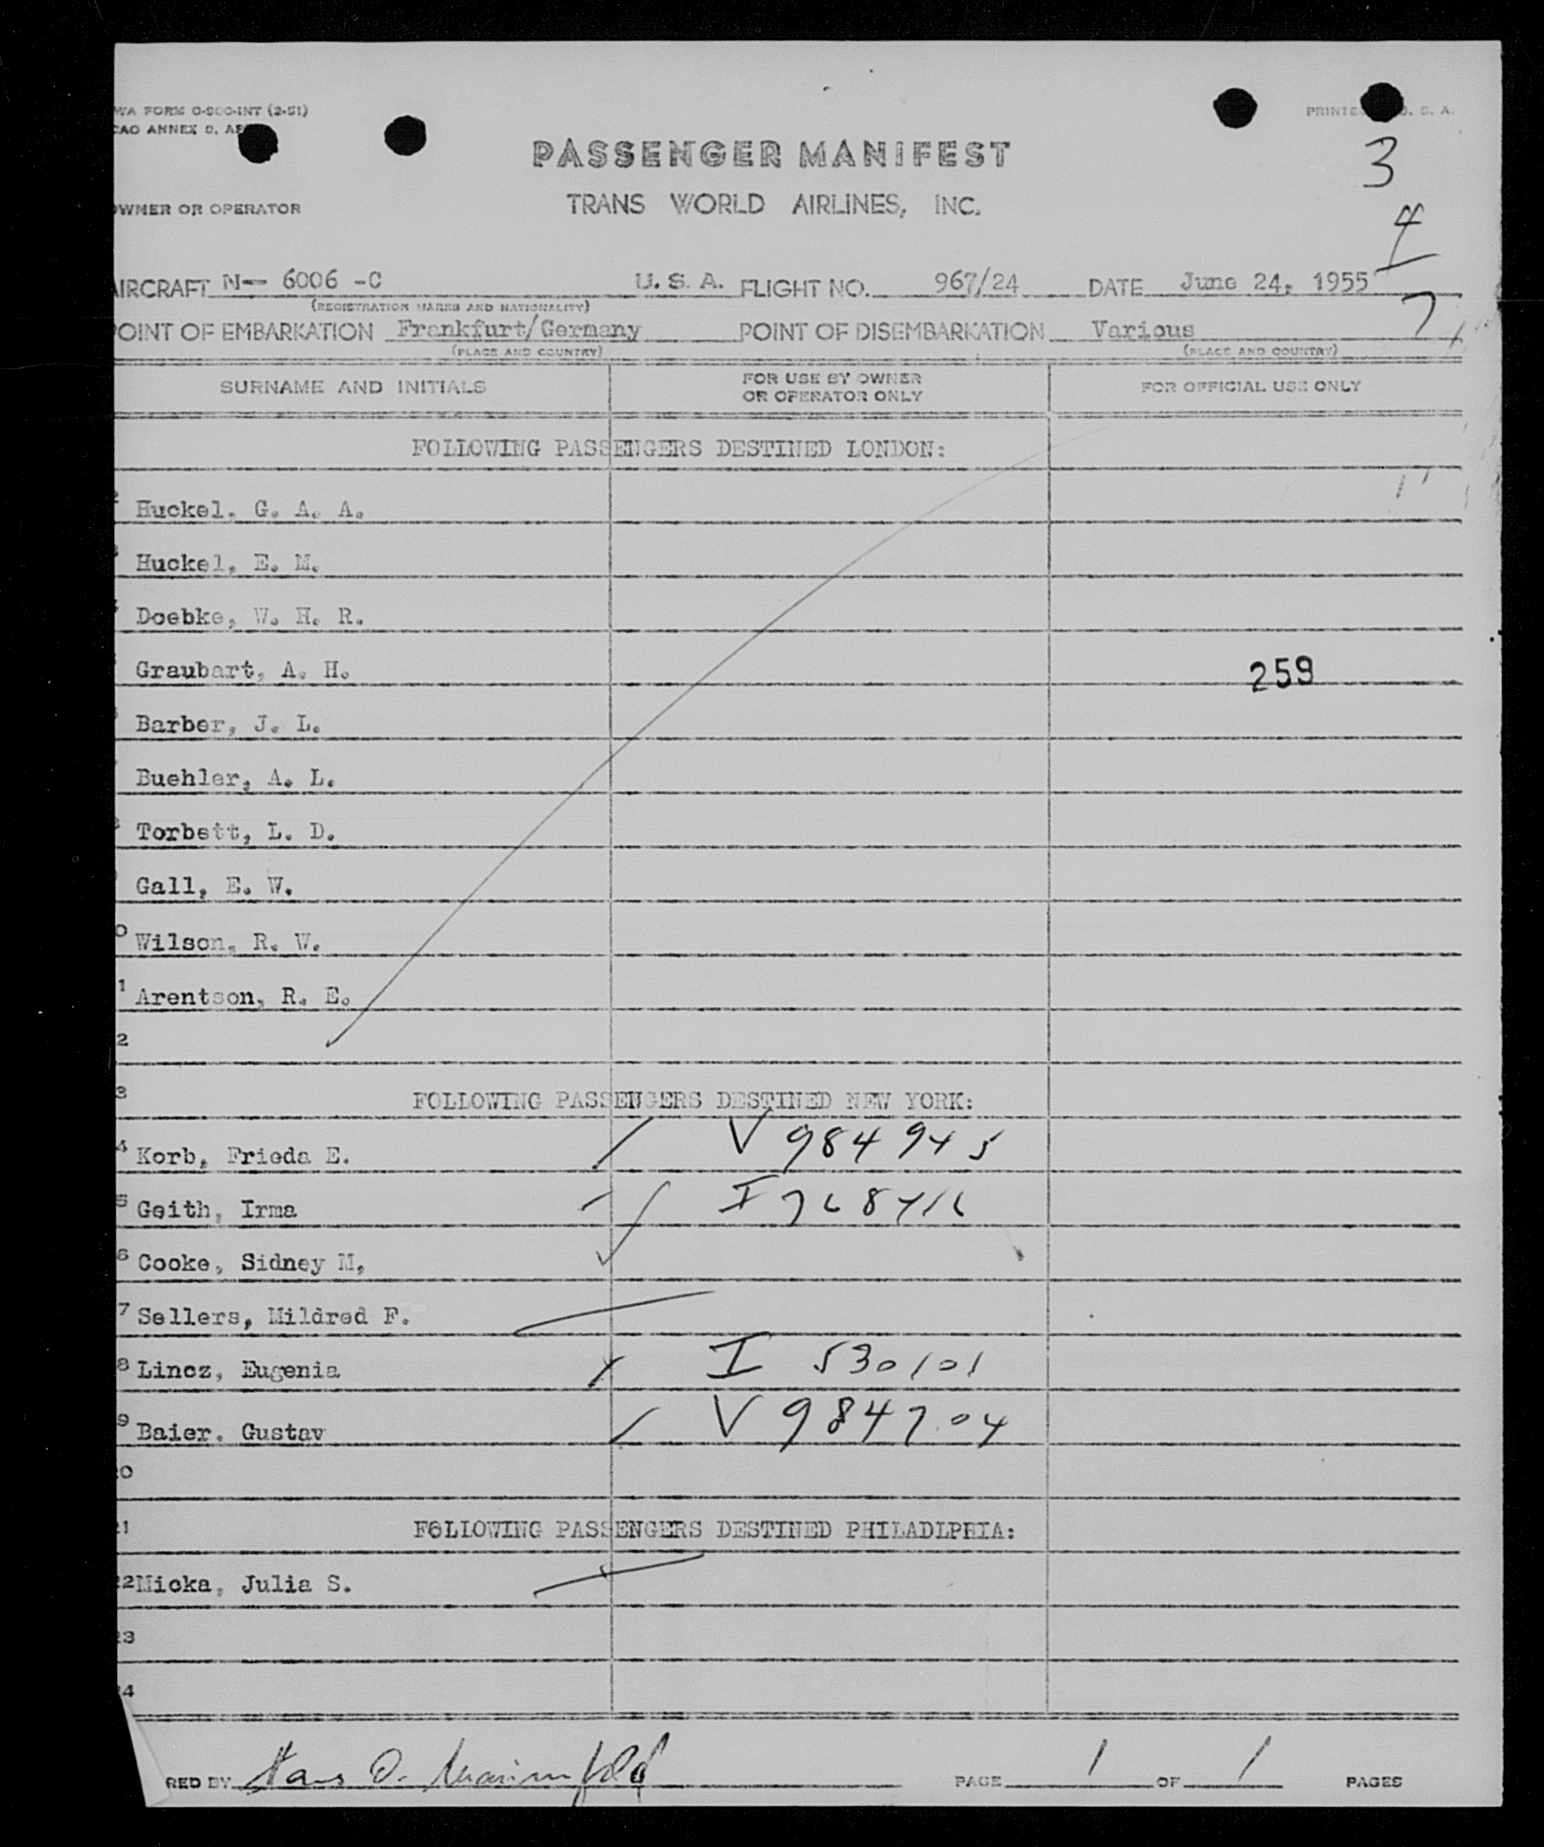 WA FORM O-900-INT (2-51)
CAO ANNEX 9, A
PRINTE U. S. A.
PASSENGER MANIFEST
3
OWNER OR OPERATOR
TRANS WORLD AIRLINES, INC.
4
AIRCRAFT N— 6006 -C U. S. A. FLIGHT NO. 967/24 DATE June 24, 1955
(REGISTRATION MARKS AND NATIONALITY)
7
POINT OF EMBARKATION Frankfurt/Germany POINT OF DISEMBARKATION Various
(PLACE AND COUNTRY) (PLACE AND COUNTRY)
SURNAME AND INITIALS FOR USE BY OWNER OR OPERATOR ONLY FOR OFFICIAL USE ONLY
FOLLOWING PASSENGERS DESTINED LONDON:
Huckel. G. A. A.
Huckel, E. M.
Doebke, W. H. R.
Graubart, A. H.
259
Barber, J. L.
Buehler, A. L.
Torbett, L. D.
Gall, E. W.
0 Wilson, R. W.
1 Arentson, R. E.
2
3 FOLLOWING PASSENGERS DESTINED NEW YORK:
4 Korb, Frieda E. V 984 945
5 Geith, Irma I 768416
6 Cooke, Sidney M,
7 Sellers, Mildred F.
8 Lincz, Eugenia I 530101
9 Baier. Gustav V 984704
20
21 FOLLOWING PASSENGERS DESTINED PHILADLPHIA:
22 Micka, Julia S.
23
24
RED BY Hans D. PAGE 1 OF 1 PAGES